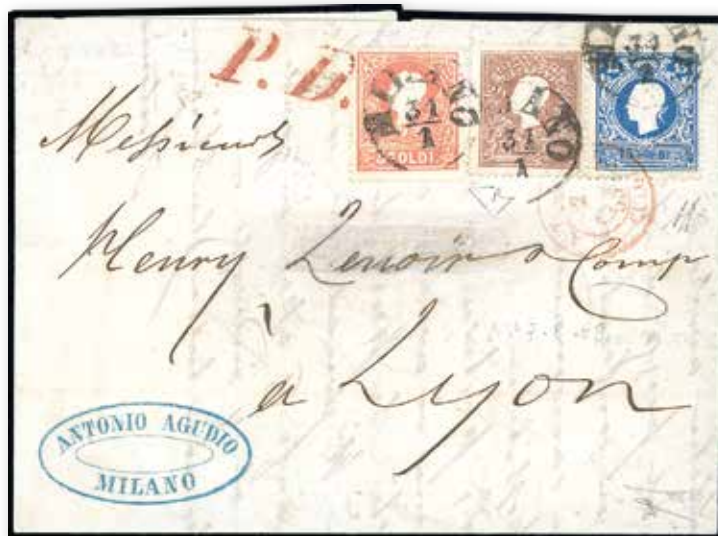 P. D.
MILANO
31
1
5 SOLDI
MILANO
31
1
MILANO
31
15 SOLDI
Messieurs
Henry Lenoir & Comp
à Lyon
ANTONIO AGUDIO
MILANO